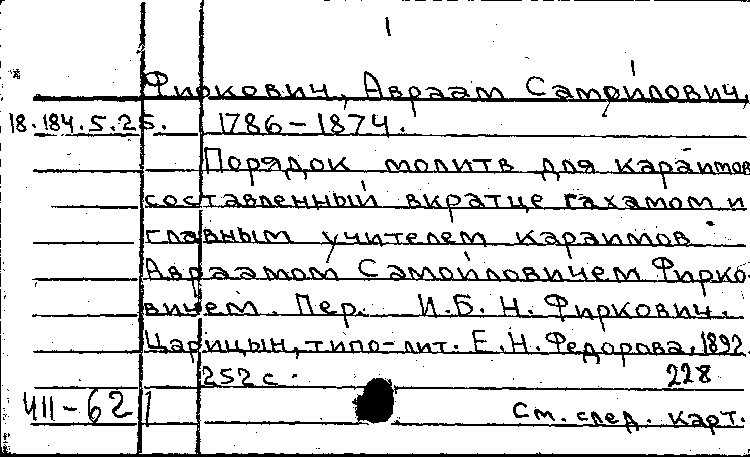 1
Фиркович, Авраам Самойлович,
18.184.5.25. 1786-1874.
Порядок молитв для караимов
составленный вкратце гахамом и
главным учителем караимов
Авраамом Самойловичем Фирко-
вичем. Пер. И.Б.Н.Фиркович.
Царицын, типо-лит. Е.Н.Федорова, 1892.
252 с. 228
См. след. карт.